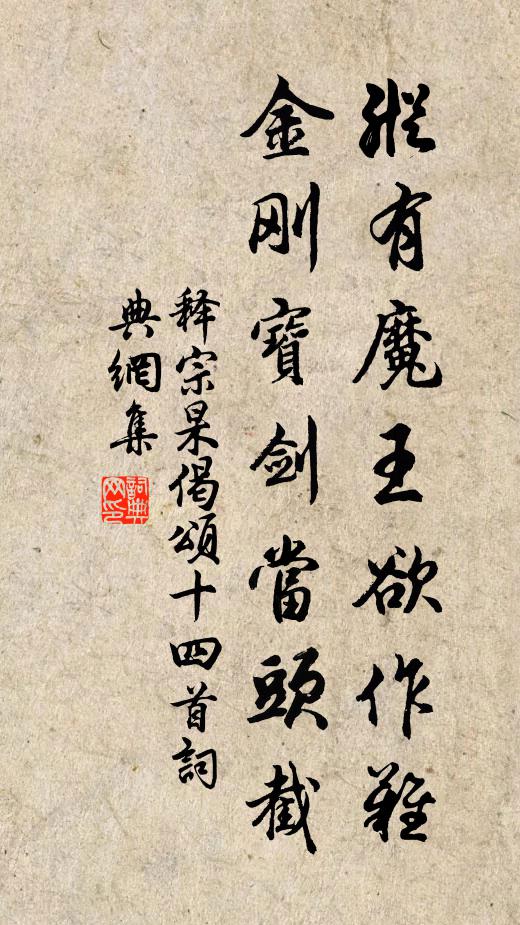 縱有魔王欲作難
金刚寶劍當頭截
释宗杲偈頌十四首詞
典網集
詞典
网印